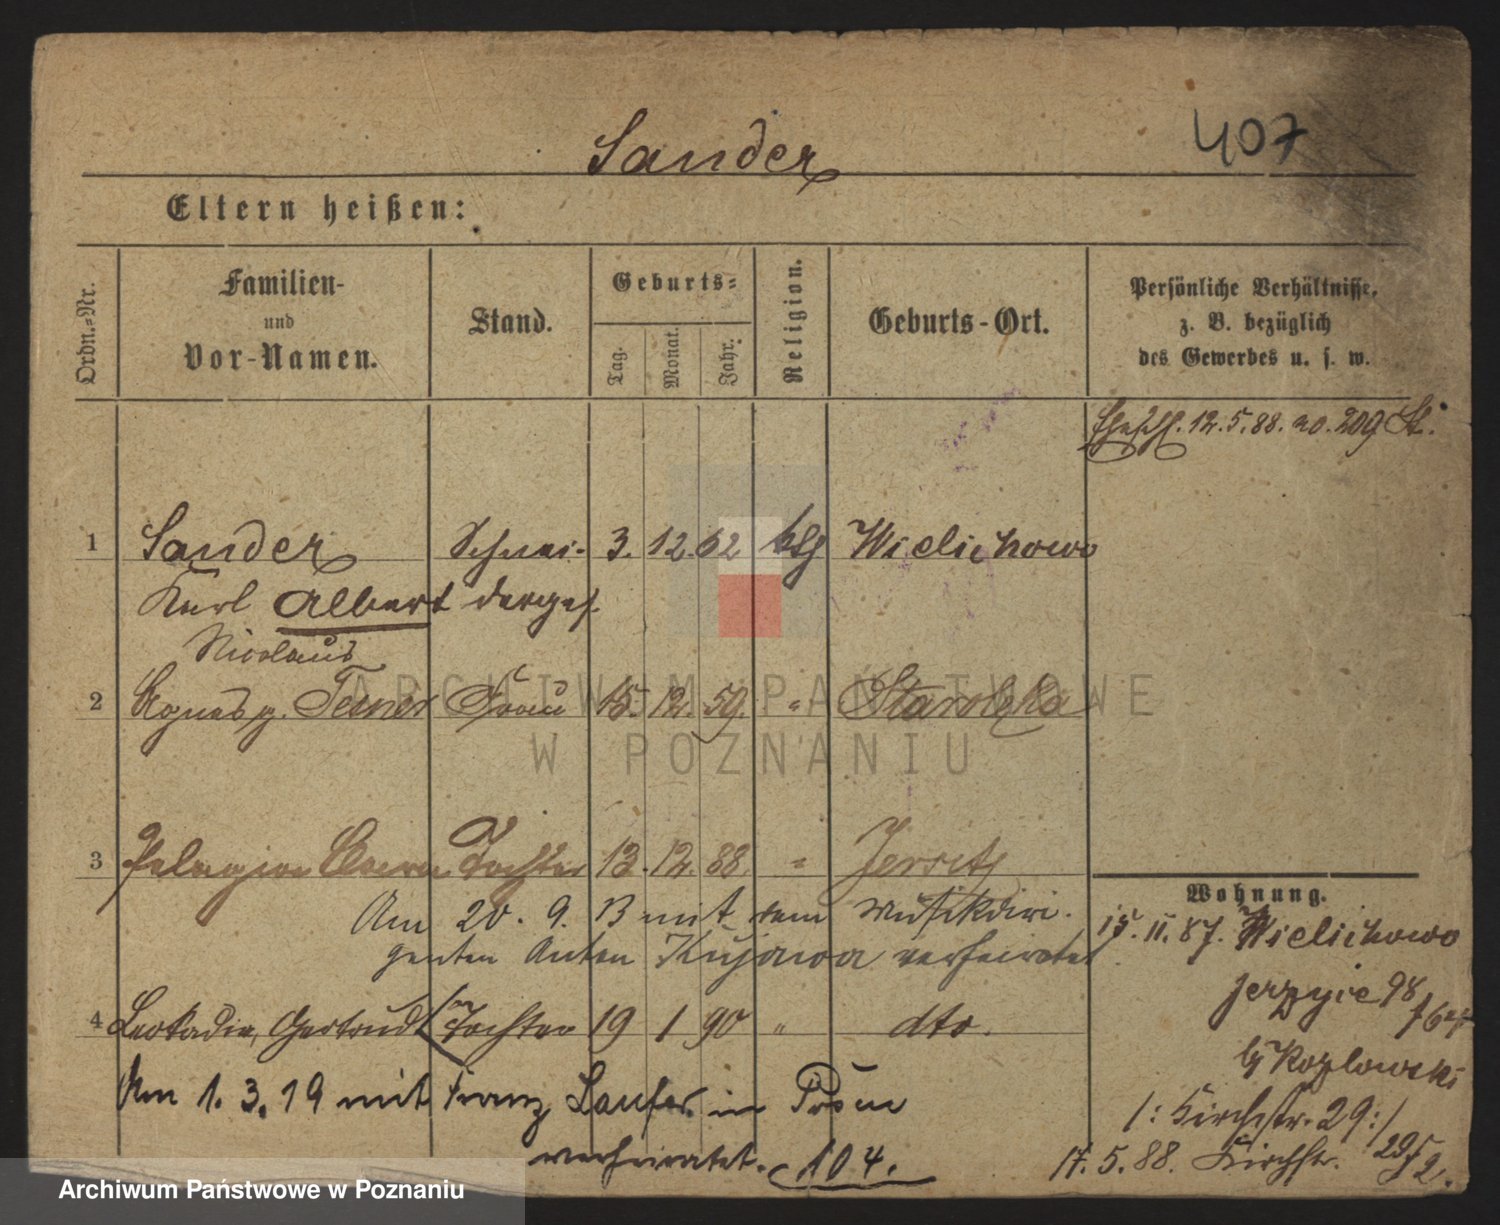 407
Sander
Eltern heißen:
Ordn.-Nr.
Familien- und Vor-Namen.
Stand.
Geburts-
Tag. Monat. Jahr.
Religion.
Geburts-Ort.
Persönliche Verhältnisse, z. B. bezüglich des Gewerbes u. s. w.
12.5.88. no. 209 St.
1 Sander Schnei- 3. 12. 62 ktḥ Wielichowo
Karl Albert derges.
Nicolaus
2 Agnes g. Frau 15. 12. 59. " Starolęka
3 Pelagia Anna Tochter 13. 12. 88. " Jersitz
Am 20. 9. 13 mit dem Musikdiri-
genten Anton Kujawa verheiratet.
4 Leokadia, Gertrud Tochter 19 1 90 " dto.
Am 1. 3. 19 mit Franz Laufer in Posen
verheiratet. 104.
Wohnung.
15. 11. 87. Wielichowo
Jerzyce 98
b/ Kozlowski
/: Kirchstr. 29 :/
17. 5. 88. Kirchstr.
ARCHIWUM PAŃSTWOWE
W POZNANIU
Archiwum Państwowe w Poznaniu